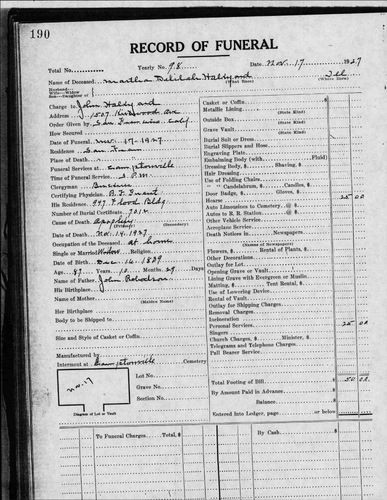 190
RECORD OF FUNERAL
Total No. Yearly No. 78 Date Nov. 17 1927
Name of Deceased Martha Delilah Hallyard Ill
(What Race) (Where Born)
Husband
Wife Widow
Son Daughter of
Charge to John Hallyard
Address 1507 Ave
Order Given by San Francisco Calif
How Secured
Date of Funeral Nov. 17 - 1927
Residence San Fran
Place of Death
Funeral Services at
Time of Funeral Service P.M.
Clergyman
Certifying Physician
His Residence 947 Flood Bldg
Number of Burial Certificate 7012
Cause of Death Apoplexy
(Primary) (Secondary)
Date of Death Nov. 14. 1927
Occupation of the Deceased At home
Single or Married Widow Religion
Date of Birth Dec 16 - 1839
Age 87 Years 10 Months 29 Days
Name of Father John Robertson
His Birthplace
Name of Mother
(Maiden Name)
Her Birthplace
Body to be Shipped to
Size and Style of Casket or Coffin
Manufactured by
Interment at Cemetery
Lot No.
Grave No.
Section No.
Diagram of Lot or Vault
Casket or Coffin
Metallic Lining
(State Kind)
Outside Box
(State Kind)
Grave Vault
(State Kind)
Burial Suit or Dress
Burial Slippers and Hose
Engraving Plate
Embalming Body (with Fluid)
Dressing Body, $ Shaving, $
Hair Dressing
Use of Folding Chairs
" " Candelabrum, $ Candles, $
Door Badge, $ Gloves, $
Hearse 25 00
Auto Limousines to Cemetery @ $
Autos to R. R. Station @ $
Other Vehicle Service
Aeroplane Service
Death Notices in Newspapers
(Names of Newspapers)
Flowers, $ Rental of Plants, $
Other Decorations
Outlay for Lot
Opening Grave or Vault
Lining Grave with Evergreen or Muslin
Matting, $ Tent Rental, $
Use of Lowering Device
Rental of Vault
Outlay for Shipping Charges
Removal Charges
Incineration
Personal Services 25 00
Singers
Church Charges, $ Minister, $
Telegrams and Telephone Charges
Pall Bearer Service
Total Footing of Bill $ 50 00
By Amount Paid in Advance
Balance
Entered into Ledger, page or below
To Funeral Charges Total, $ By Cash $